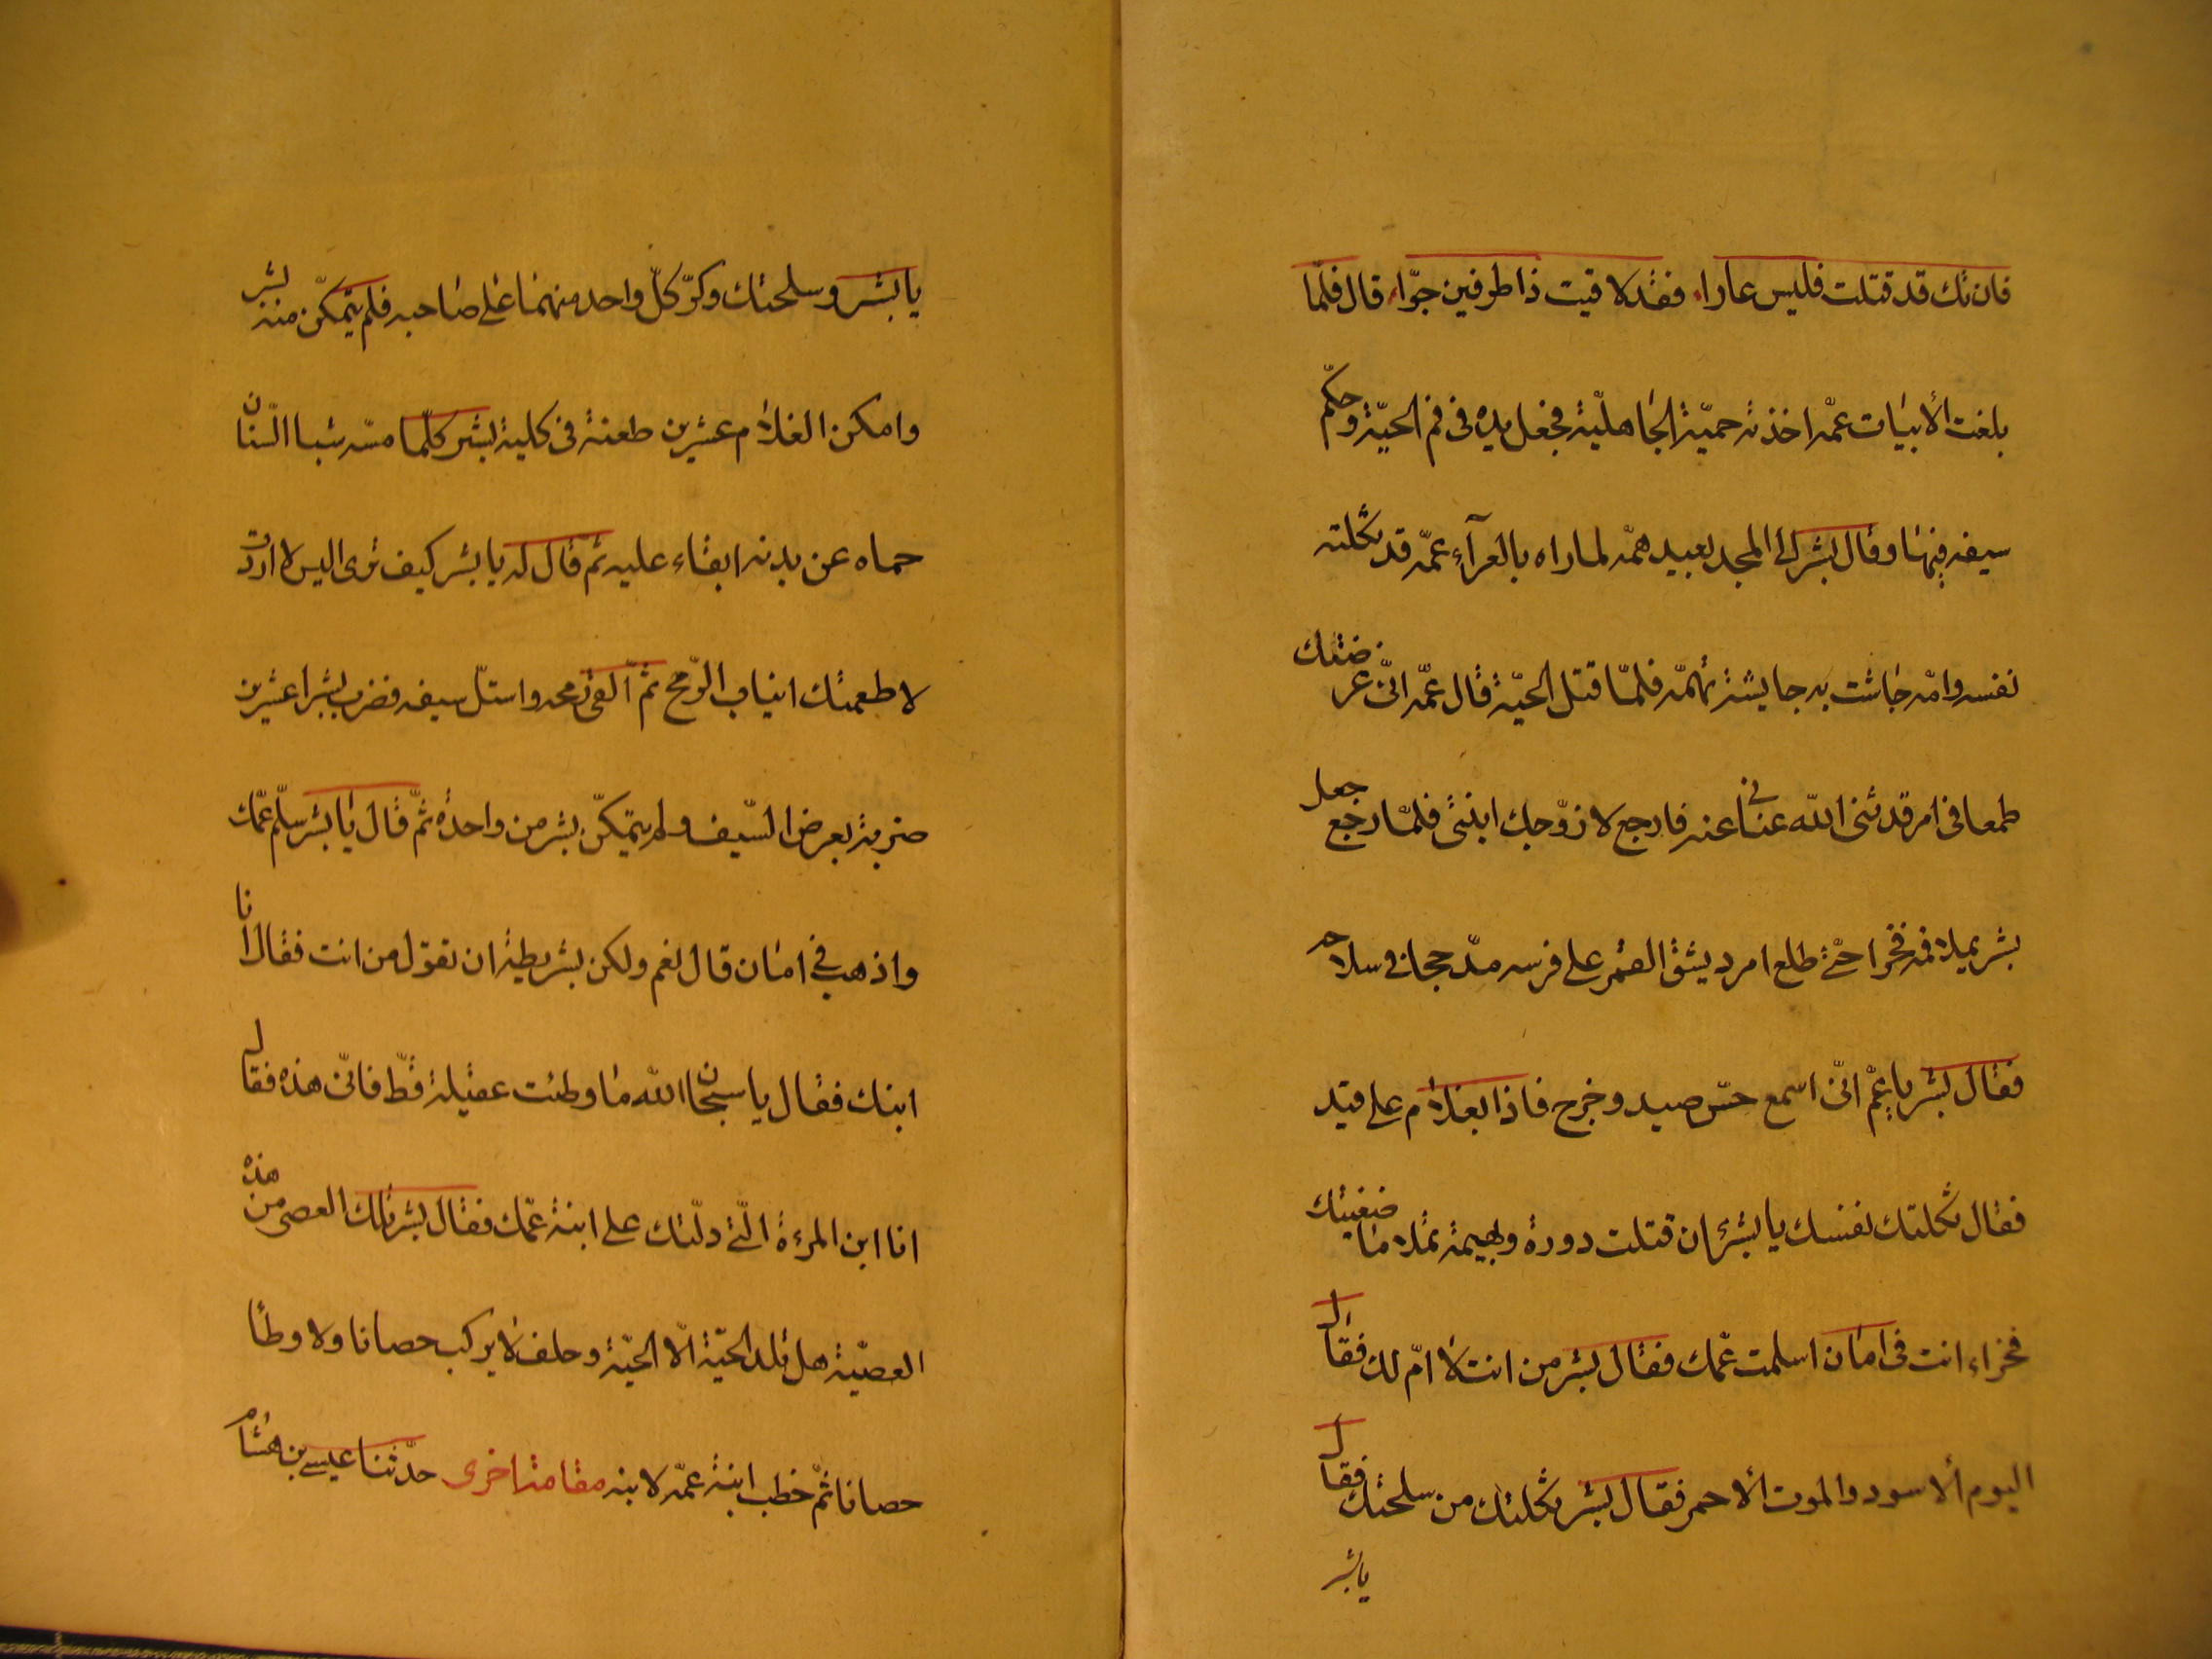 فان تك قد قتلت فليس عارا، فقد لاقيت ذا طرفين حرّا، قال فلمّا
بلغت الأبيات عمّه اخذته حميّة الجاهليّة فجعل يده فى فم الحيّة وحكّم
سيفه فيها وقال بشر الى المجد بعيد همّه لما راه بالعرآء عمّه قد ثكلته
نفسه وامّه جاشت به جايشة تهمّه فلمّا قتل الحيّة قال عمّه انّى عرضتك
طمعا فى امر قد ثنى الله عنانى عنه فارجع لازوّجك ابنتى فلمّا رجع جعل
بشر يملا فمه فخرا حتّى طلع امرد يشق القمر على فرسه مدججا فى سلاحه
فقال بشر يا عمّ انّى اسمع حسّ صيد وخرج فاذا بغلام على قيد
فقال ثكلتك نفسك يا بشر ان قتلت دودة وبهيمة تملا ماضغيك
فخراء انت فى امان اسلمت عمّك فقال بشر من انت لا امّ لك فقال
اليوم الاسود والموت الاحمر فقال بشر ثكلتك من سلحتك فقال
يا بشر
يا بشر وسلحتك وكرّ كلّ واحد منهما على صاحبه فلم يتمكّن منه بشر
وامكن الغلام عشرين طعنة فى كلية بشر كلّما مسّه شبا السّنان
حماه عن بدنه ابقاء عليه ثمّ قال له يا بشر كيف ترى اليس لا اردت
لاطعمتك انياب الرّمح ثمّ القى رمحه واستلّ سيفه فضرب بشرا عشرين
ضربة بعرض السّيف ولم يتمكّن بشر من واحدة ثمّ قال يا بشر سلّم عمّك
واذهب فى امان قال نعم ولكن بشريطة ان تقول من انت فقال انا
ابنك فقال يا سبحان الله ما وطئت عقيلة قطّ فانّى هذه فقال
انا ابن المرءة الّتى دلّتك على ابنة عمّك فقال بشر تلك العصى من هذه
العصيّة هل تلد الحيّة الّا الحيّة وحلف لا يركب حصانا ولا وطأ
حصانا ثمّ خطب ابنة عمّه لابنه مقامة اخرى حدّثنا عيسى بن هشام